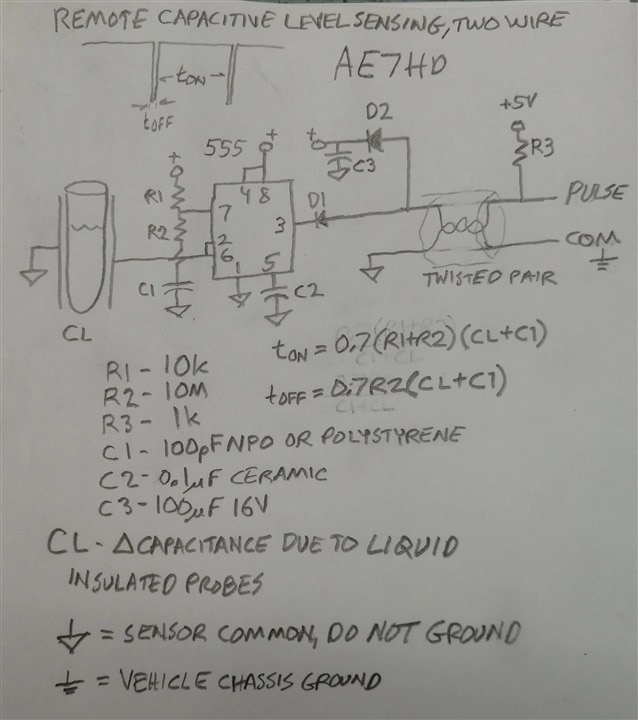 REMOTE CAPACITIVE LEVEL SENSING, TWO WIRE
AE7HD
tON
tOFF
D2
+5V
+
555
+
t
C3
R3
+
R1
4 8
7
D1
3
PULSE
R2
2
6
1
5
COM
C1
C2
TWISTED PAIR
CL
tON = 0.7(R1+R2)(CL+C1)
tOFF = 0.7R2(CL+C1)
R1 - 10k
R2 - 10M
R3 - 1k
C1 - 100pF NPO OR POLYSTYRENE
C2 - 0.1µF CERAMIC
C3 - 100µF 16V
CL - ΔCAPACITANCE DUE TO LIQUID
INSULATED PROBES
= SENSOR COMMON, DO NOT GROUND
= VEHICLE CHASSIS GROUND